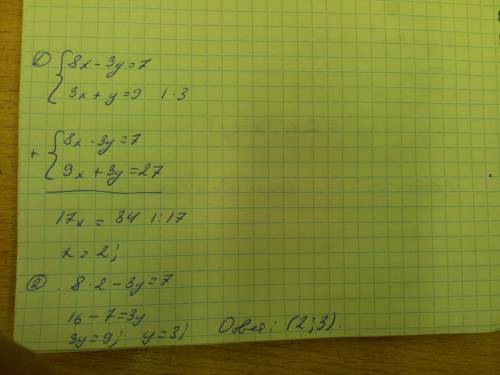 1) { 8x - 3y = 7
3x + y = 9 | · 3
+ { 8x - 3y = 7
9x + 3y = 27
17x = 34 | : 17
x = 2;
2) 8 · 2 - 3y = 7
16 - 7 = 3y
3y = 9; y = 3; Ответ: (2; 3).